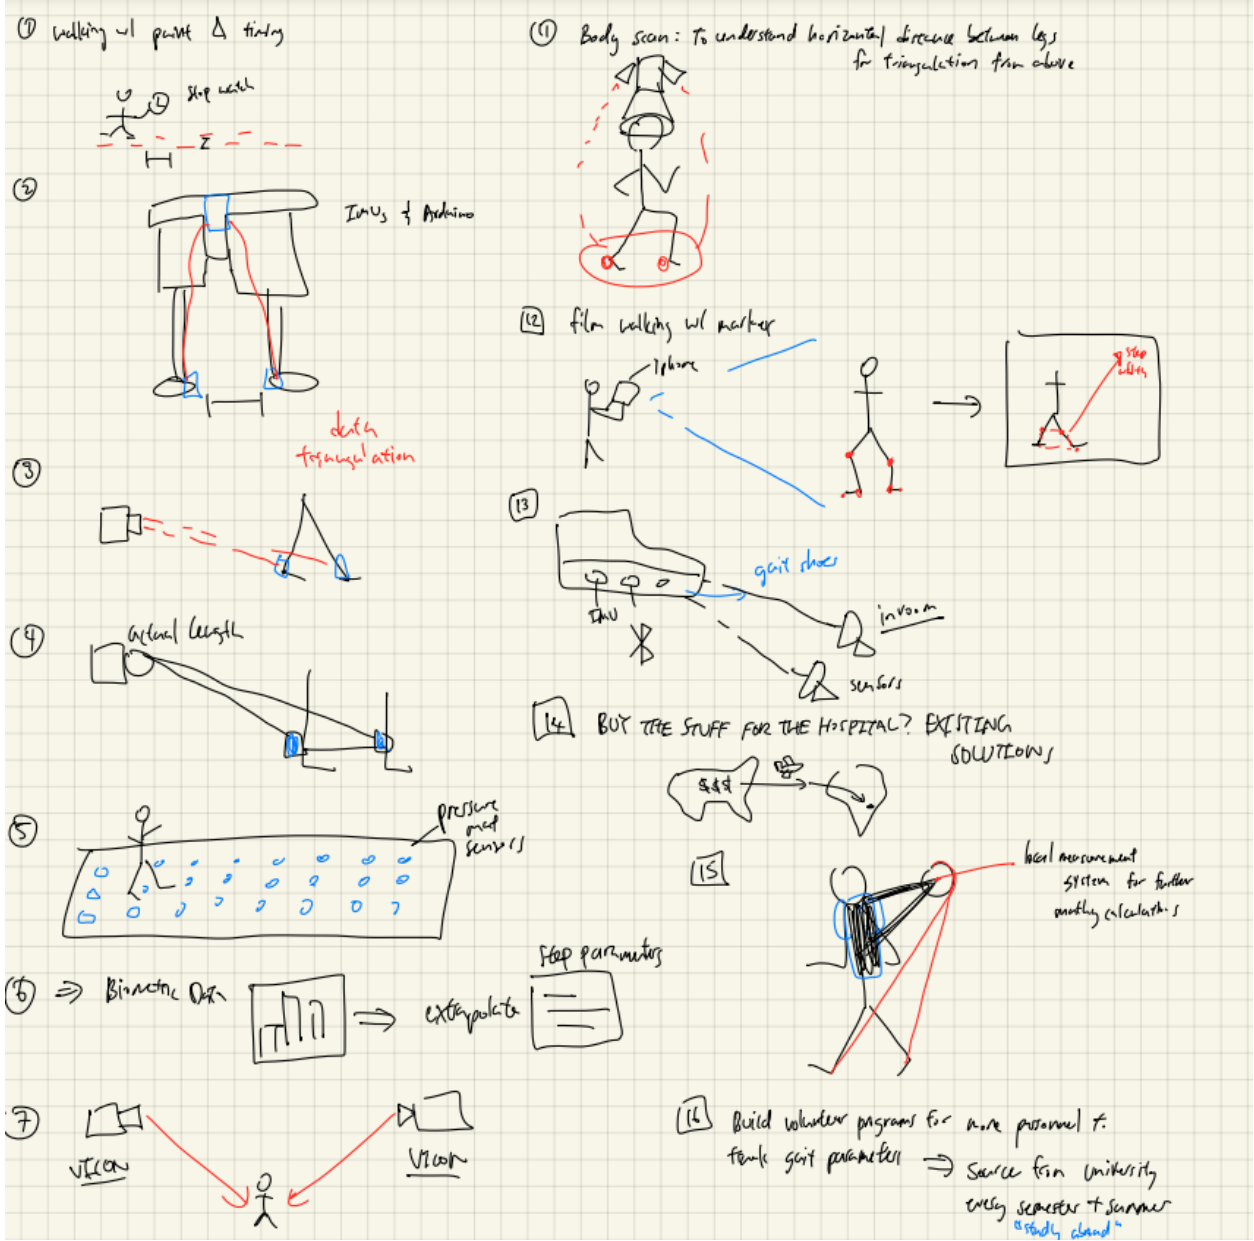 ① walking w/ paint Δ timing
stop watch
②
IMUs & Arduino
data
triangulation
③
④ actual length
⑤
pressure
mat
sensors
⑥ ⇒ Biometric Data ⇒ extrapolate
step parameters
⑦
VICON
VICON
⑪ Body scan: To understand horizontal distance between legs
for triangulation from above
12 film walking w/ marker
iphone
step
width
13
gait shoes
IMU
in room
sensors
14 BUY THE STUFF FOR THE HOSPITAL? EXISTING
SOLUTIONS
$$$
15
local measurement
system for further
calculations
16 Build volunteer programs for more personnel to
track gait parameters ⇒ Source from university
every semester + summer
"study abroad"